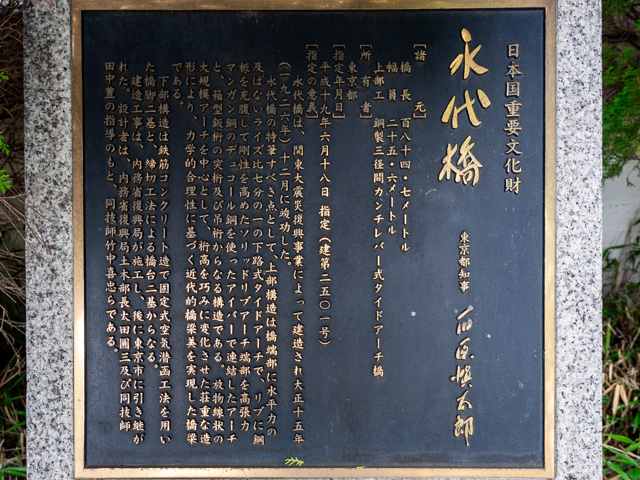 日本国重要文化財
永代橋
東京都知事 石原慎太郎
[諸元]
橋長 百八十四・七メートル
幅員 二十五・六メートル
上部工 鋼製三径間カンチレバー式タイドアーチ橋
[所有者]
東京都
[指定年月日]
平成十九年六月十八日 指定(建第二五〇一号)
[指定の意義]
永代橋は、関東大震災復興事業によって建造され大正十五年
(一九二六年)十二月に竣功した。
永代橋の特筆すべき点として、上部構造は橋端部に水平力の
及ばないライズ比七分の一の下路式タイドアーチで、リブに鋼
板を充腹して剛性を高めたソリッドリブアーチ端部を高張力
マンガン鋼のデュコール鋼を使ったアイバーで連結したアーチ
と、箱型鈑桁の突桁及び吊桁からなる構造である。放物線状の
大規模アーチを中心として、桁高を巧みに変化させた荘重な造
形により、力学的合理性に基づく近代的橋梁美を実現した橋梁
である。
下部構造は鉄筋コンクリート造で固定式空気潜函工法を用い
た橋脚二基と、締切工法による橋台二基からなる。
建造工事は、内務省復興局が施工し、後に東京市に引き継が
れた。設計者は、内務省復興局土木部長太田圓三及び同技師
田中豊の指導のもと、同技師竹中喜忠らである。